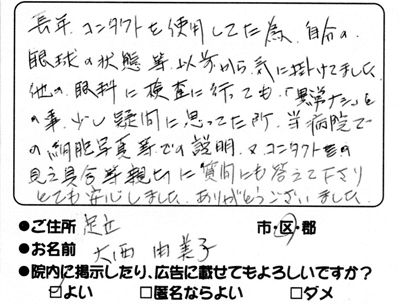 長年、コンタクトを使用してた為、自分の
眼球の状態等、以前から気に掛けてました
他の眼科に検査に行っても、「異常ナシ」と
の事、少し疑問に思ってた所、当病院で
の細胞写真等での説明、又コンタクト等の
見え具合等親切に質問にも答えて下さり
とても安心しました。ありがとうございました。
●ご住所 足立 市・区・郡
●お名前 大西由美子
●院内に掲示したり、広告に載せてもよろしいですか?
☑よい □匿名ならよい □ダメ